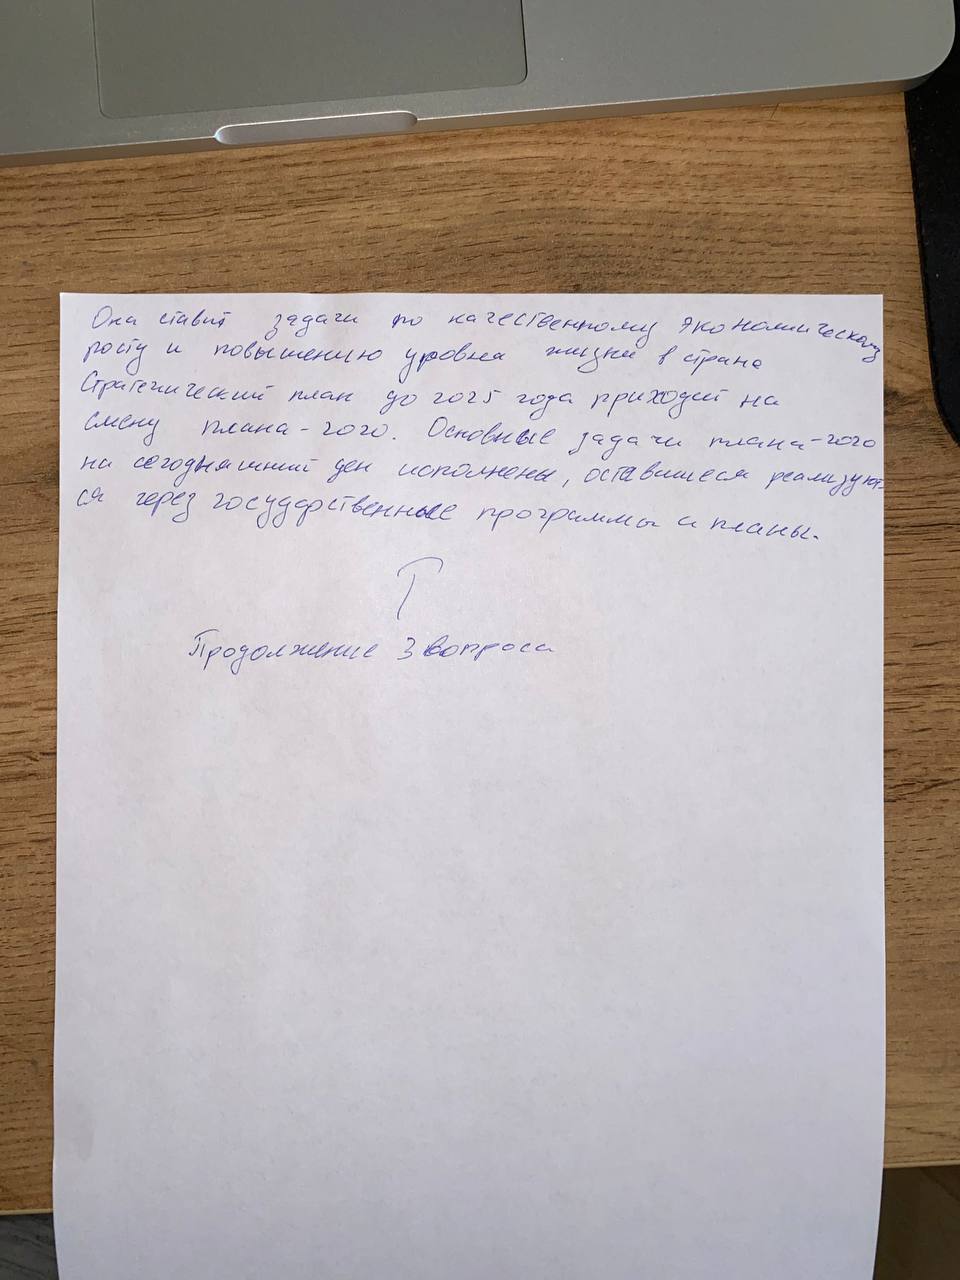 Она ставит задачи по качественному экономическому
росту и повышению уровня жизни в страна
Стратегический план до 2025 года приходит на
смену плана-2020. Основные задачи плана-2020
на сегодняшний ден исполнены, оставшиеся реализуют-
ся через государственные программы и планы.
Продолжение 3 вопроса